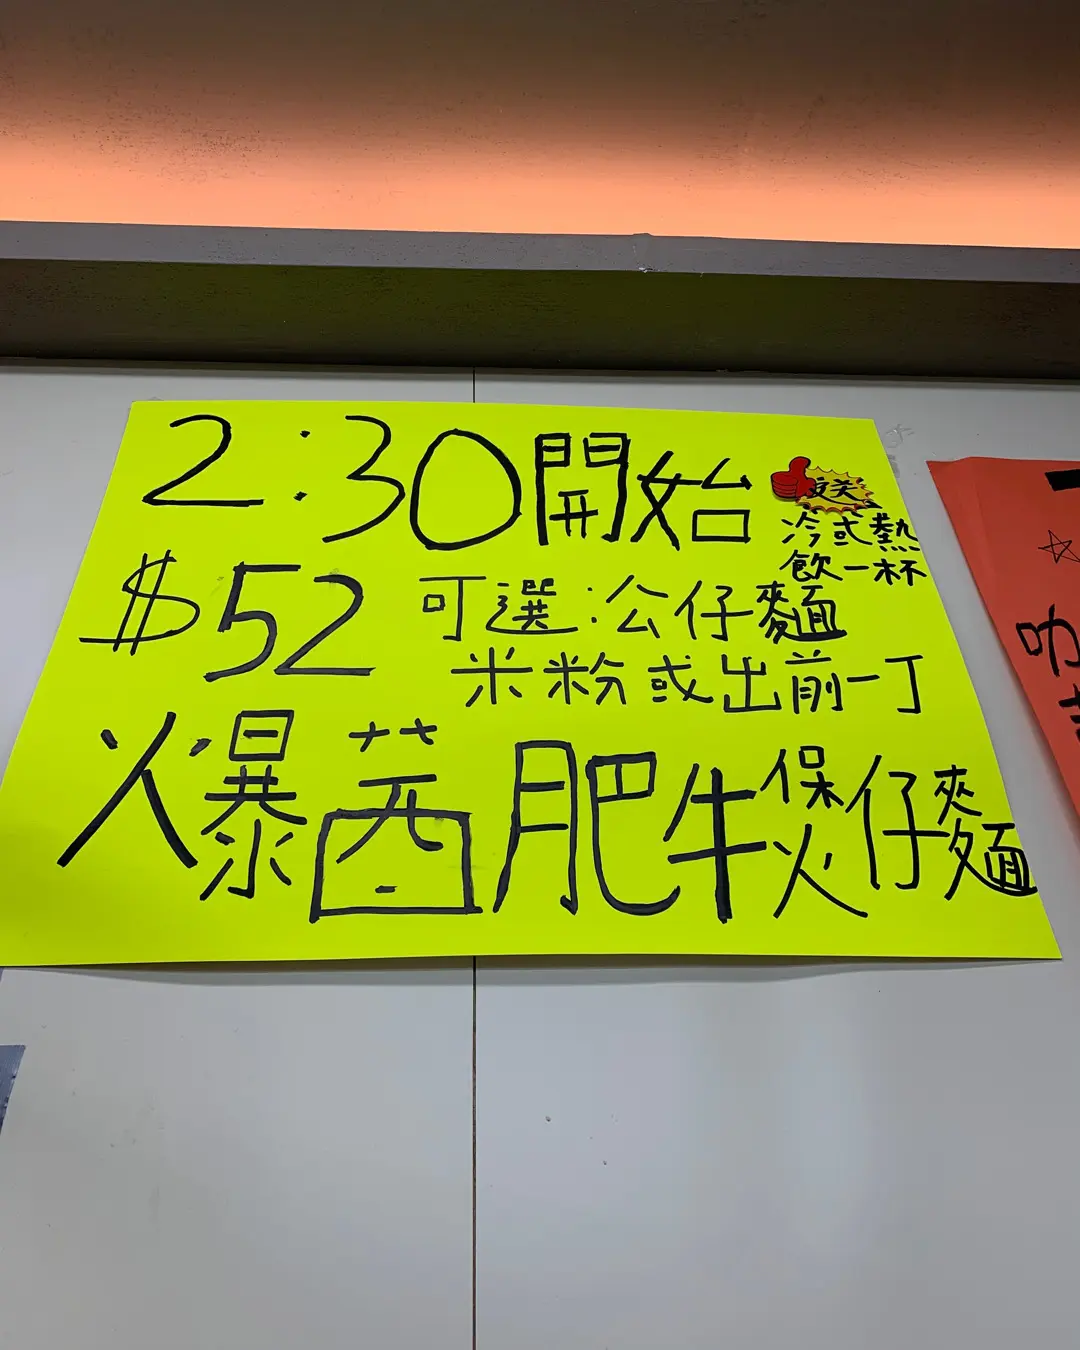 2:30開始
送
冷或熱
飲一杯
$52 可選:公仔麵
米粉或出前一丁
爆茜肥牛煲仔麵
☆
咖